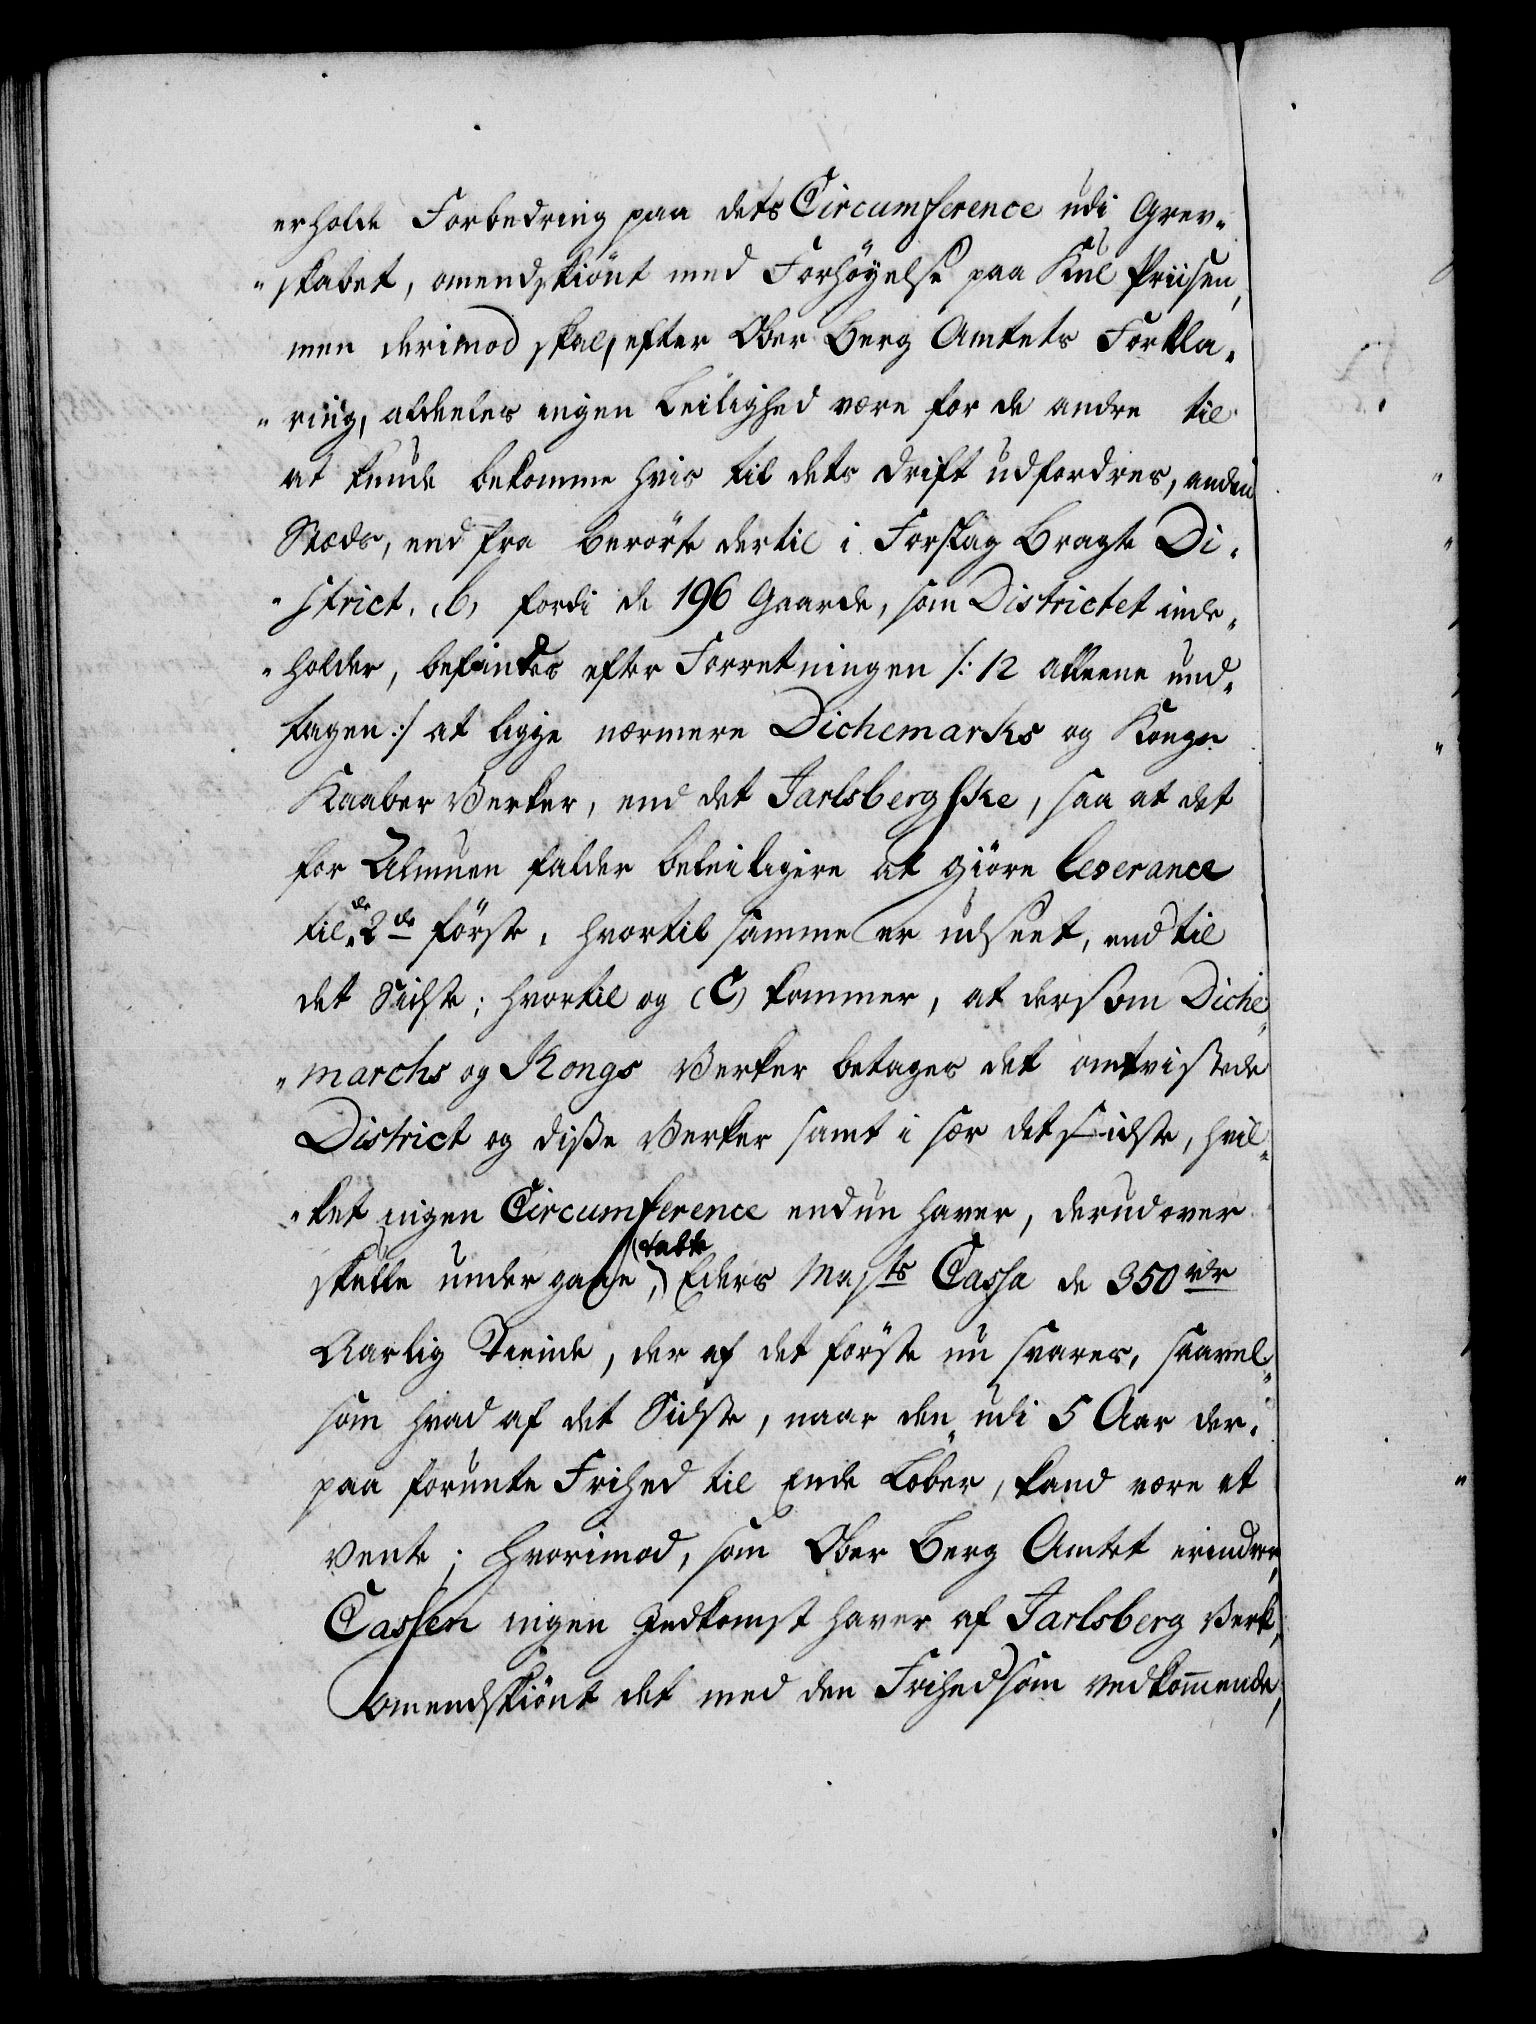 erholde Forbedring paa dets Circumference udi Grev-
-skabet, omendskiönt med Forhöyelse paa Kul Priisen,
men derimod skal, efter Ober Berg Amtets Forkla-
-ring, aldeeles ingen Leilighed være for de andre til
at kunde bekomme hvis til dets Drift udfordres, anden
Stæds, end fra berörte dertil i Forslag bragte Di-
-strict. (b) fordi de 196 Gaarde, som Districtet inde-
-holder, befindes efter Forretningen /: 12 alleene und-
tagen :/ at ligge nærmere Dichemarks og Kongs
Kaaber Verker, end det Jarlsbergske, saa at det
for Almuen falder beleiligere at giöre leverance
til de 2de förste, hvortil samme er udseet, end til
det Sidste; hvortil og (C) kommer, at dersom Diche-
-marchs og Kongs Verker betages det omtvistede
District og disse Verker samt i sær det sidste, hvil-
-ket ingen Circumference endnu haver, derudover
skulle undergaae, (tabte) Eders Majts Cassa de 350 rdr
Aarlig Tiende, der af det förste nu svares, saavel-
som hvad af det Sidste, naar den udi 5 Aar der-
paa forunte Frihed til Ende Löber, kand være at
vente; hvorimod, som Ober Berg Amtet erindrer,
Cassen ingen Indkomst haver af Jarlsberg Verk,
omendskiönt det med den Frihed som vedkommende,